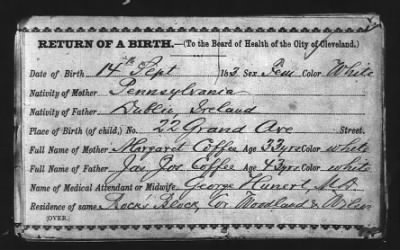 RETURN OF A BIRTH.—(To the Board of Health of the City of Cleveland.)
Date of Birth 14th Sept 183. Sex Fem Color White
Nativity of Mother Pennsylvania
Nativity of Father Dublin Ireland
Place of Birth (of child,) No. 22 Grand Ave Street.
Full Name of Mother Margaret Coffee Age 33 yrs Color white
Full Name of Father Jas Jos Coffee Age 43 yrs Color white
Name of Medical Attendant or Midwife, George Kunert, M.D.
Residence of same, Rock's Block, Cor Woodland &
(OVER.)